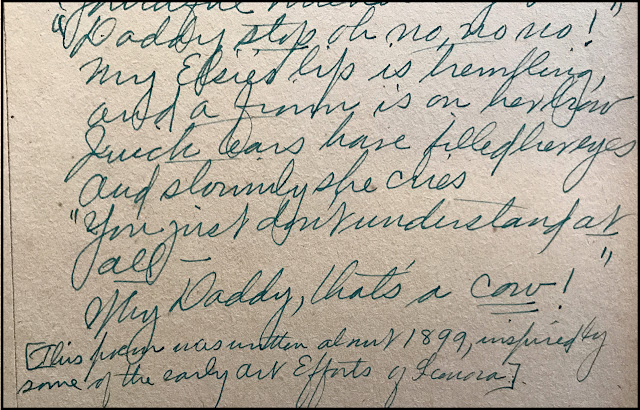 "Daddy stop oh no, no no!
My Elsie's lip is trembling,
and a frown is on her brow
Quick tears have filled her eyes
And stormily she cries
"You just don't understand at
all —
Why Daddy, that's a cow!"
[This poem was written about 1899, inspired by
some of the early art Efforts of Lenora].